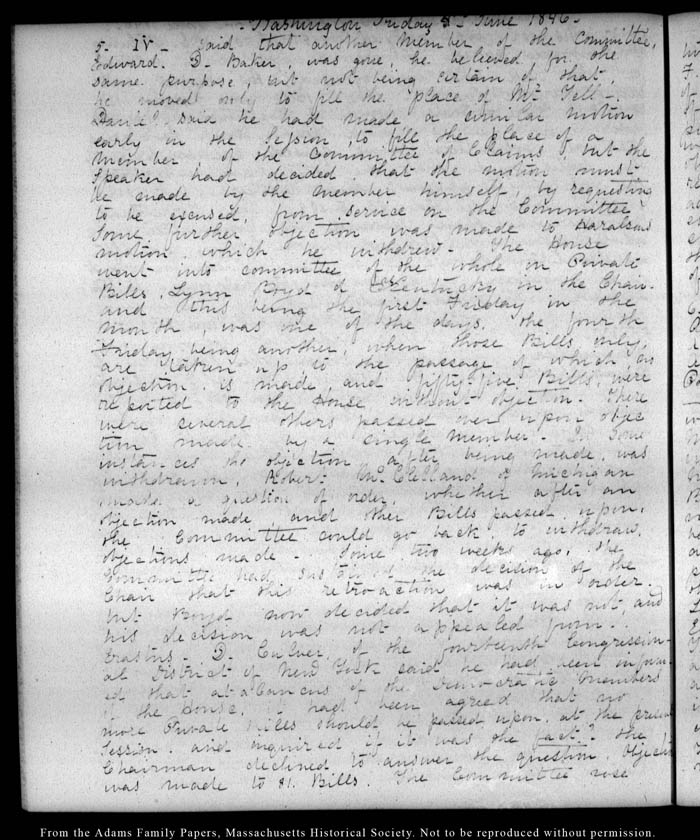 Washington Friday 5. June 1846.
5. IV. said that another Member of the Committee,
Edward. D. Baker, was gone, he believed, for the
same purpose, but not being certain of that,
he moved only to fill the place of Mr Yell.
Daniel said he had made a similar motion
early in the Session, to fill the place of a
member of the Committee of Claims, but the
Speaker had decided that the motion must
be made by the member himself, by requesting
to be excused, from service on the Committee.
Some further objection was made to Haralson's
motion, which he withdrew. The House
went into committee of the whole on Private
Bills, Lynn Boyd of Kentucky in the Chair.
and this being the first Friday in the
month, was one of the days, the fourth
Friday being another, when those Bills only,
are taken up, to the passage of which, no
objection is made, and fifty five Bills, were
reported to the House without objection. There
were several others passed over upon objec
tion made by a single member. In some
instances the objection after being made, was
withdrawn, Robert McClelland of Michigan
made a question of order, whether after an
objection made, and other Bills passed upon,
the Committee could go back to withdraw
objections made. Some two weeks ago, the
Committee had sustained the decision of the
Chair that this retroaction was in order.
but Boyd now decided that it was not, and
his decision was not appealed from.
Erastus. D. Culver, of the fourteenth Congression-
al District of New York said he had been inform-
ed that at a Caucus of the Democratic Members
of the House, it had been agreed that no
more Private Bills should be passed upon, at the present
Session. and inquired if it was the fact. the
Chairman declined to answer the question. Objection
was made to 81. Bills. The Committee rose
From the Adams Family Papers, Massachusetts Historical Society. Not to be reproduced without permission.